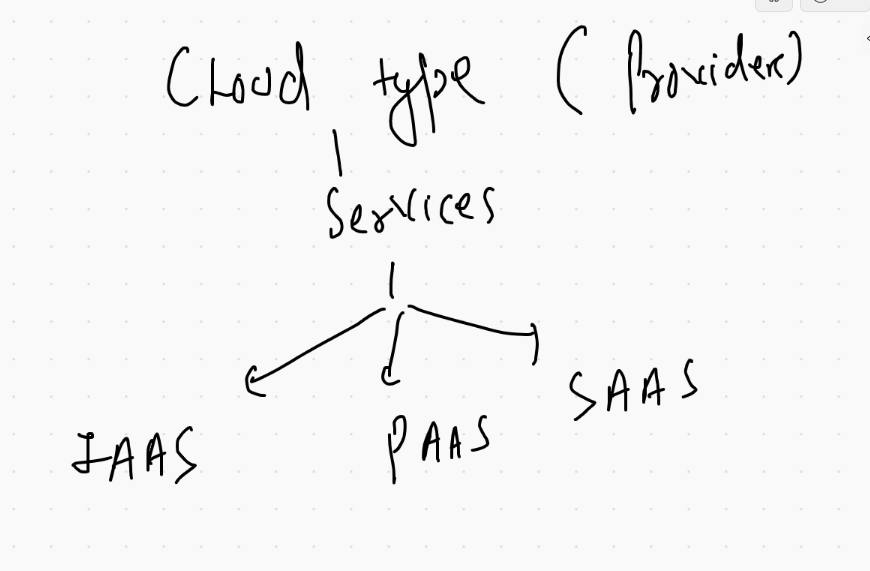 Cloud type (Provider)
Services
IAAS PAAS SAAS